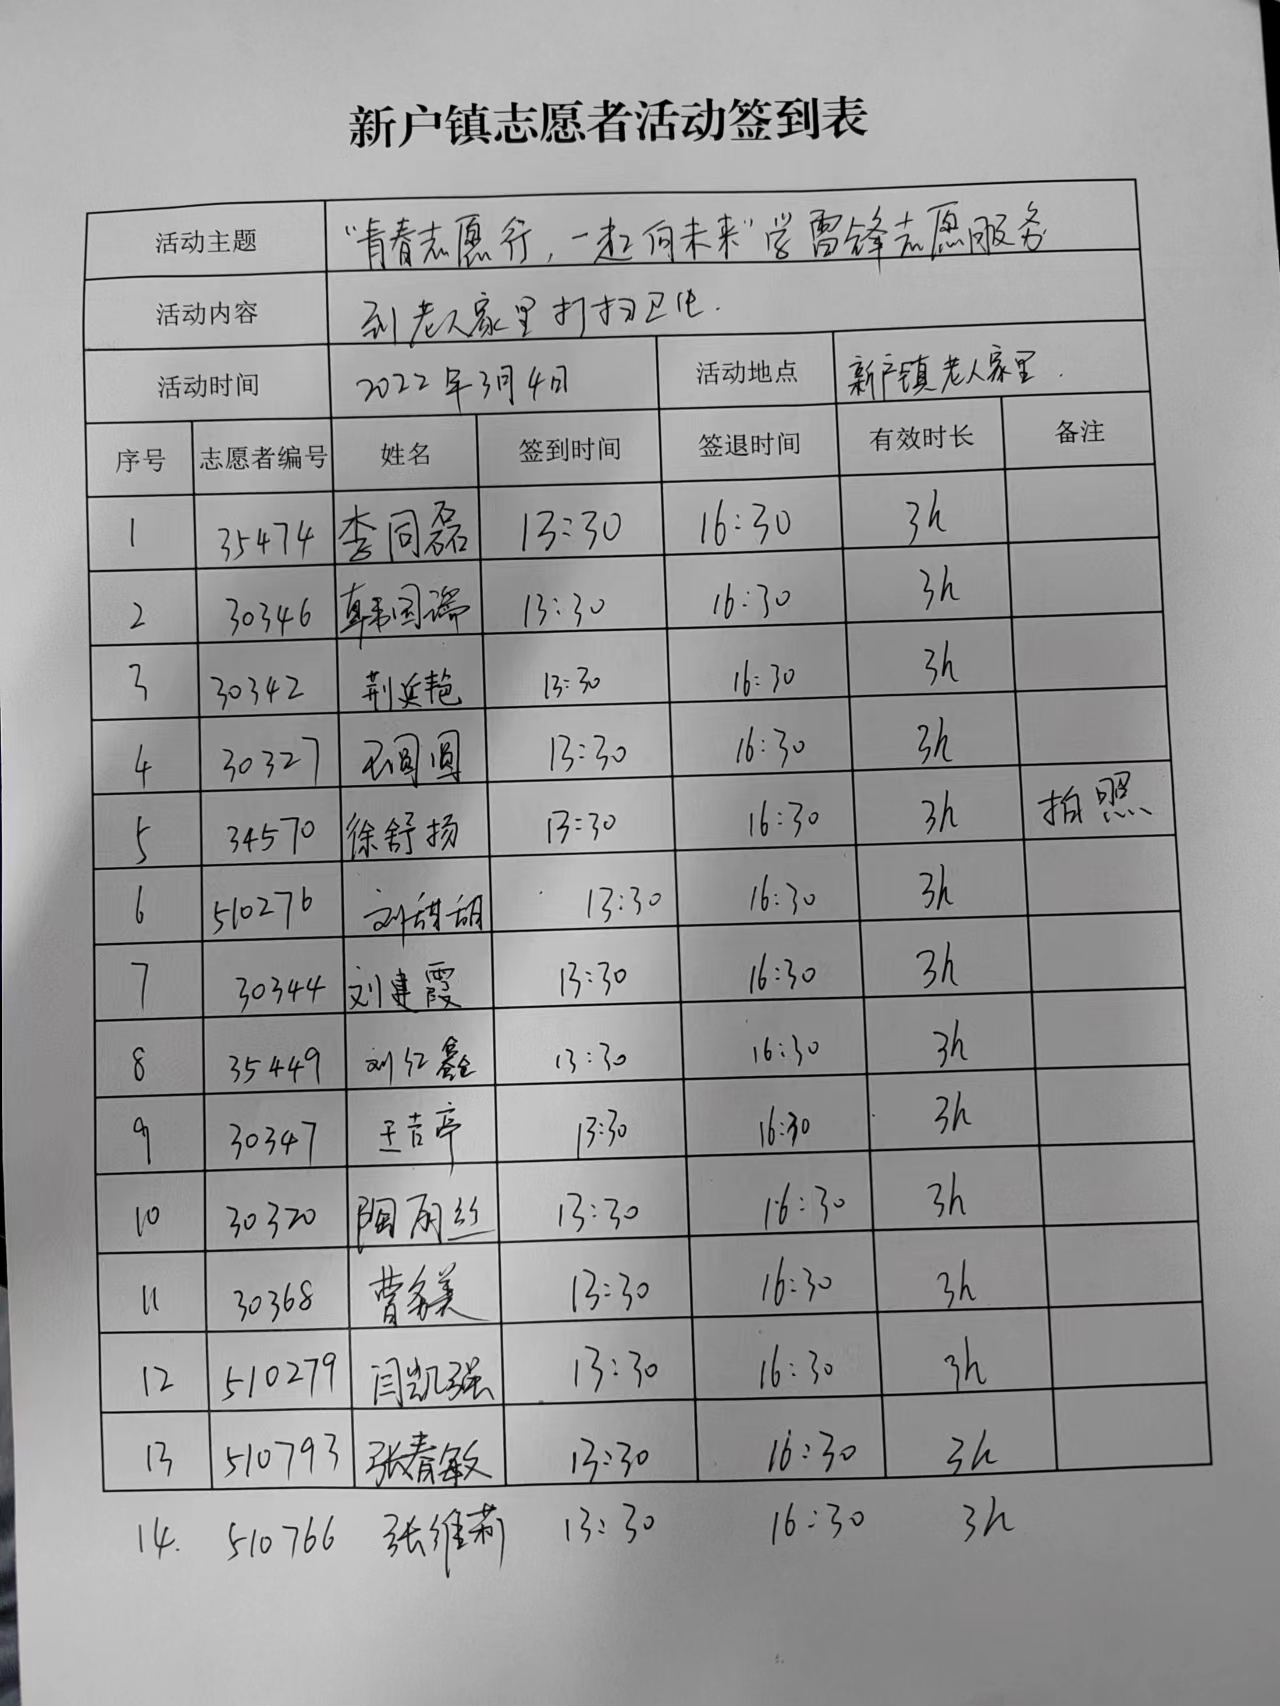 新户镇志愿者活动签到表
活动主题 “青春志愿行，一起向未来”学雷锋志愿服务
活动内容 到老人家里打扫卫生.
活动时间 2022年3月4日 活动地点 新户镇老人家里.
序号 志愿者编号 姓名 签到时间 签退时间 有效时长 备注
1 35474 李同磊 13:30 16:30 3h
2 30346 韩国瑞 13:30 16:30 3h
3 30342 荆延艳 13:30 16:30 3h
4 30327 石圆圆 13:30 16:30 3h
5 34570 徐舒扬 13:30 16:30 3h 拍照
6 510276 刘甜甜 13:30 16:30 3h
7 30344 刘建霞 13:30 16:30 3h
8 35449 刘红鑫 13:30 16:30 3h
9 30347 王吉亭 13:30 16:30 3h
10 30320 陶丽丝 13:30 16:30 3h
11 30368 13:30 16:30 3h
12 510279 闫凯强 13:30 16:30 3h
13 510793 张春敏 13:30 16:30 3h
14. 510766 张维莉 13:30 16:30 3h